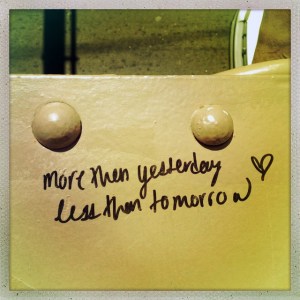 more then yesterday
less than tomorrow ♡